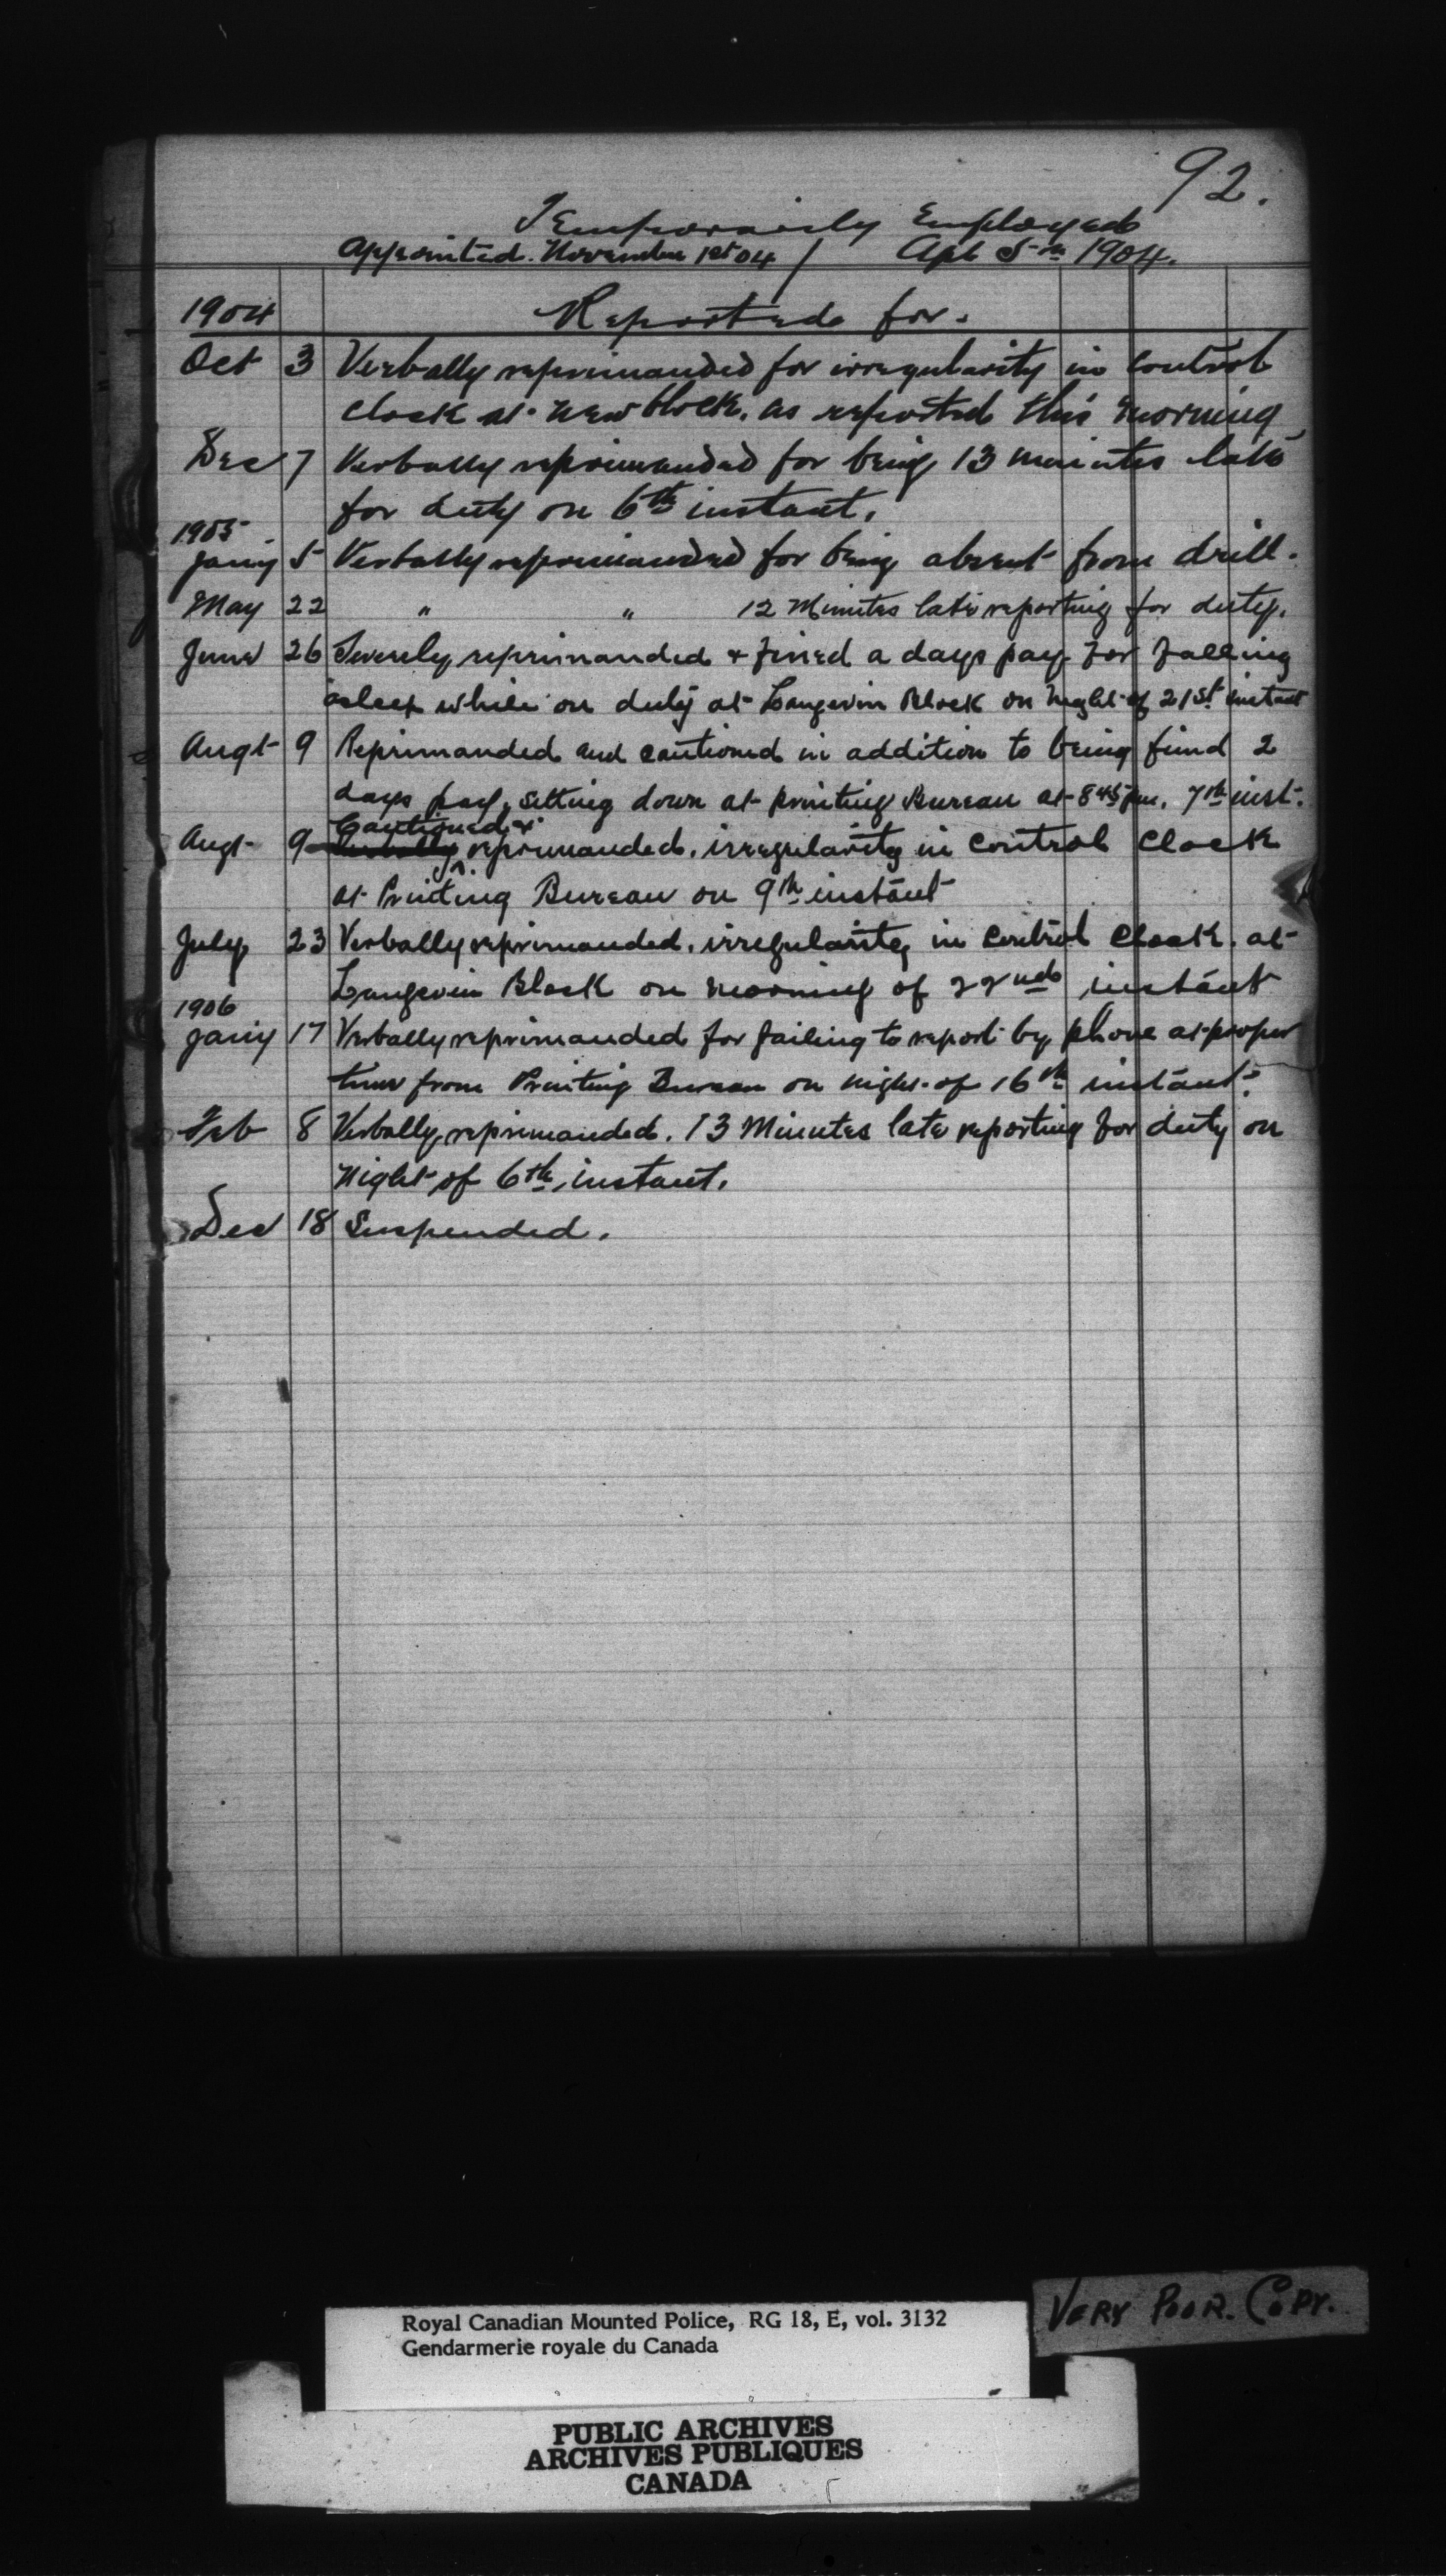 92.
Temporarily Employed
Appointed. November 1st 04 / Apl 5th 1904.
1904 Reported for.
Oct 3 Verbally reprimanded for irregularity in control
clock at new block. as reported this morning
Dec 7 Verbally reprimanded for being 13 minutes late
for duty on 6th instant.
1905
Jany 5 Verbally reprimanded for being absent from drill.
May 22 " " 12 Minutes late reporting for duty.
June 26 Severely reprimanded & fined a days pay for falling
asleep while on duty at Langevin Block on night of 21st instant
Augt 9 Reprimanded and cautioned in addition to being fined 2
days pay, sitting down at printing Bureau at 8 45 pm. 7th inst.
Cautioned &
Augt 9 Verbally reprimanded. irregularity in control clock
at Printing Bureau on 9th instant
July 23 Verbally reprimanded. irregularity in control clock. at
Langevin Block on morning of 22nd instant
1906
Jany 17 Verbally reprimanded for failing to report by phone at proper
time from Printing Bureau on night of 16th instant.
Feb 8 Verbally reprimanded. 13 Minutes late reporting for duty on
night of 6th instant.
Dec 18 Suspended.
VERY POOR. COPY.
Royal Canadian Mounted Police, RG 18, E, vol. 3132
Gendarmerie royale du Canada
PUBLIC ARCHIVES
ARCHIVES PUBLIQUES
CANADA